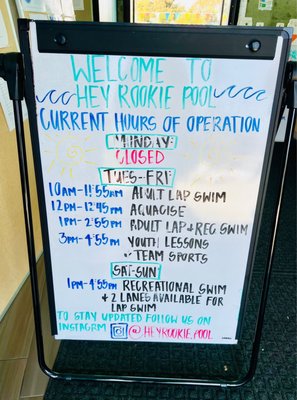 WELCOME TO
HEY ROOKIE POOL
CURRENT HOURS OF OPERATION
MUNDAY:
CLOSED
TUES-FRI:
10AM-11:55AM ADULT LAP SWIM
12PM-12:45PM AQUACISE
1PM-2:55PM ADULT LAP + REC SWIM
3PM-4:55PM YOUTH LESSONS
+ TEAM SPORTS
SAT-SUN:
1PM-4:55PM RECREATIONAL SWIM
+ 2 LANES AVAILABLE FOR
LAP SWIM
TO STAY UPDATED FOLLOW US ON
INSTAGRM @HEYROOKIE.POOL